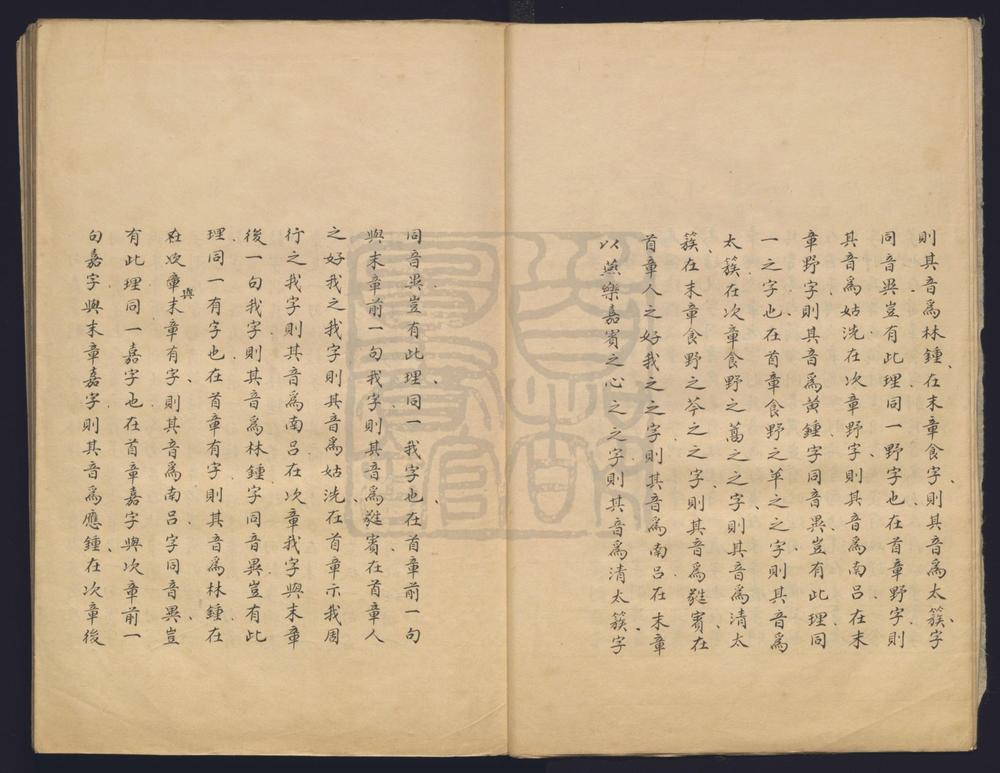 則其音爲林鍾在末章食字則其音爲太簇字
同音異豈有此理同一野字也在首章野字則
其音爲姑洗在次章野字則其音爲南呂在末
章野字則其音爲黄鍾字同音異豈有此理同
一之字也在首章食野之苹之之字則其音爲
太簇在次章食野之蒿之之字則其音爲清太
簇在末章食野之芩之之字則其音爲蕤賓在
首章人之好我之之字則其音爲南呂在末章
以燕樂嘉賓之心之之字則其音爲清太簇字
同音異豈有此理同一我字也在首章前一句
與末章前一句我字則其音爲蕤賓在首章人
之好我之我字則其音爲姑洗在首章示我周
行之我字則其音爲南呂在次章我字與末章
後一句我字則其音爲林鍾字同音異豈有此
理同一有字也在首章有字則其音爲林鍾在
在次章與末章有字則其音爲南呂字同音異豈
有此理同一嘉字也在首章嘉字與次章前一
句嘉字與末章嘉字則其音爲應鍾在次章後